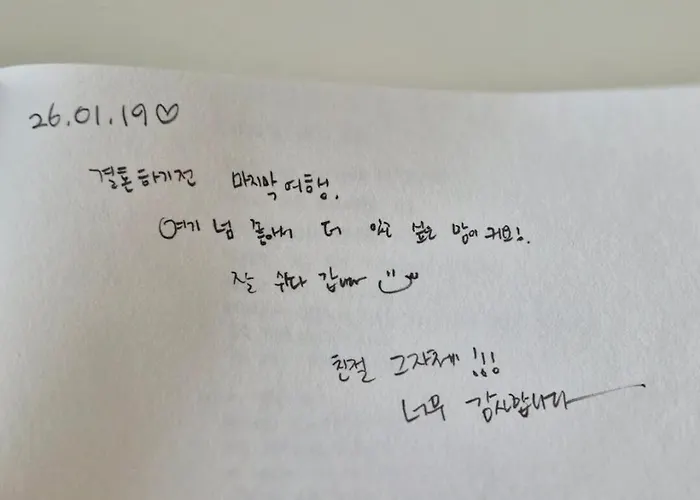 26.01.19♡
결혼하기전 마지막 여행.
여기 넘 좋아서 더 있고 싶은 맘이 커요!.
잘 쉬다 갑니다
친절 그자체!!!
너무 감사합니다